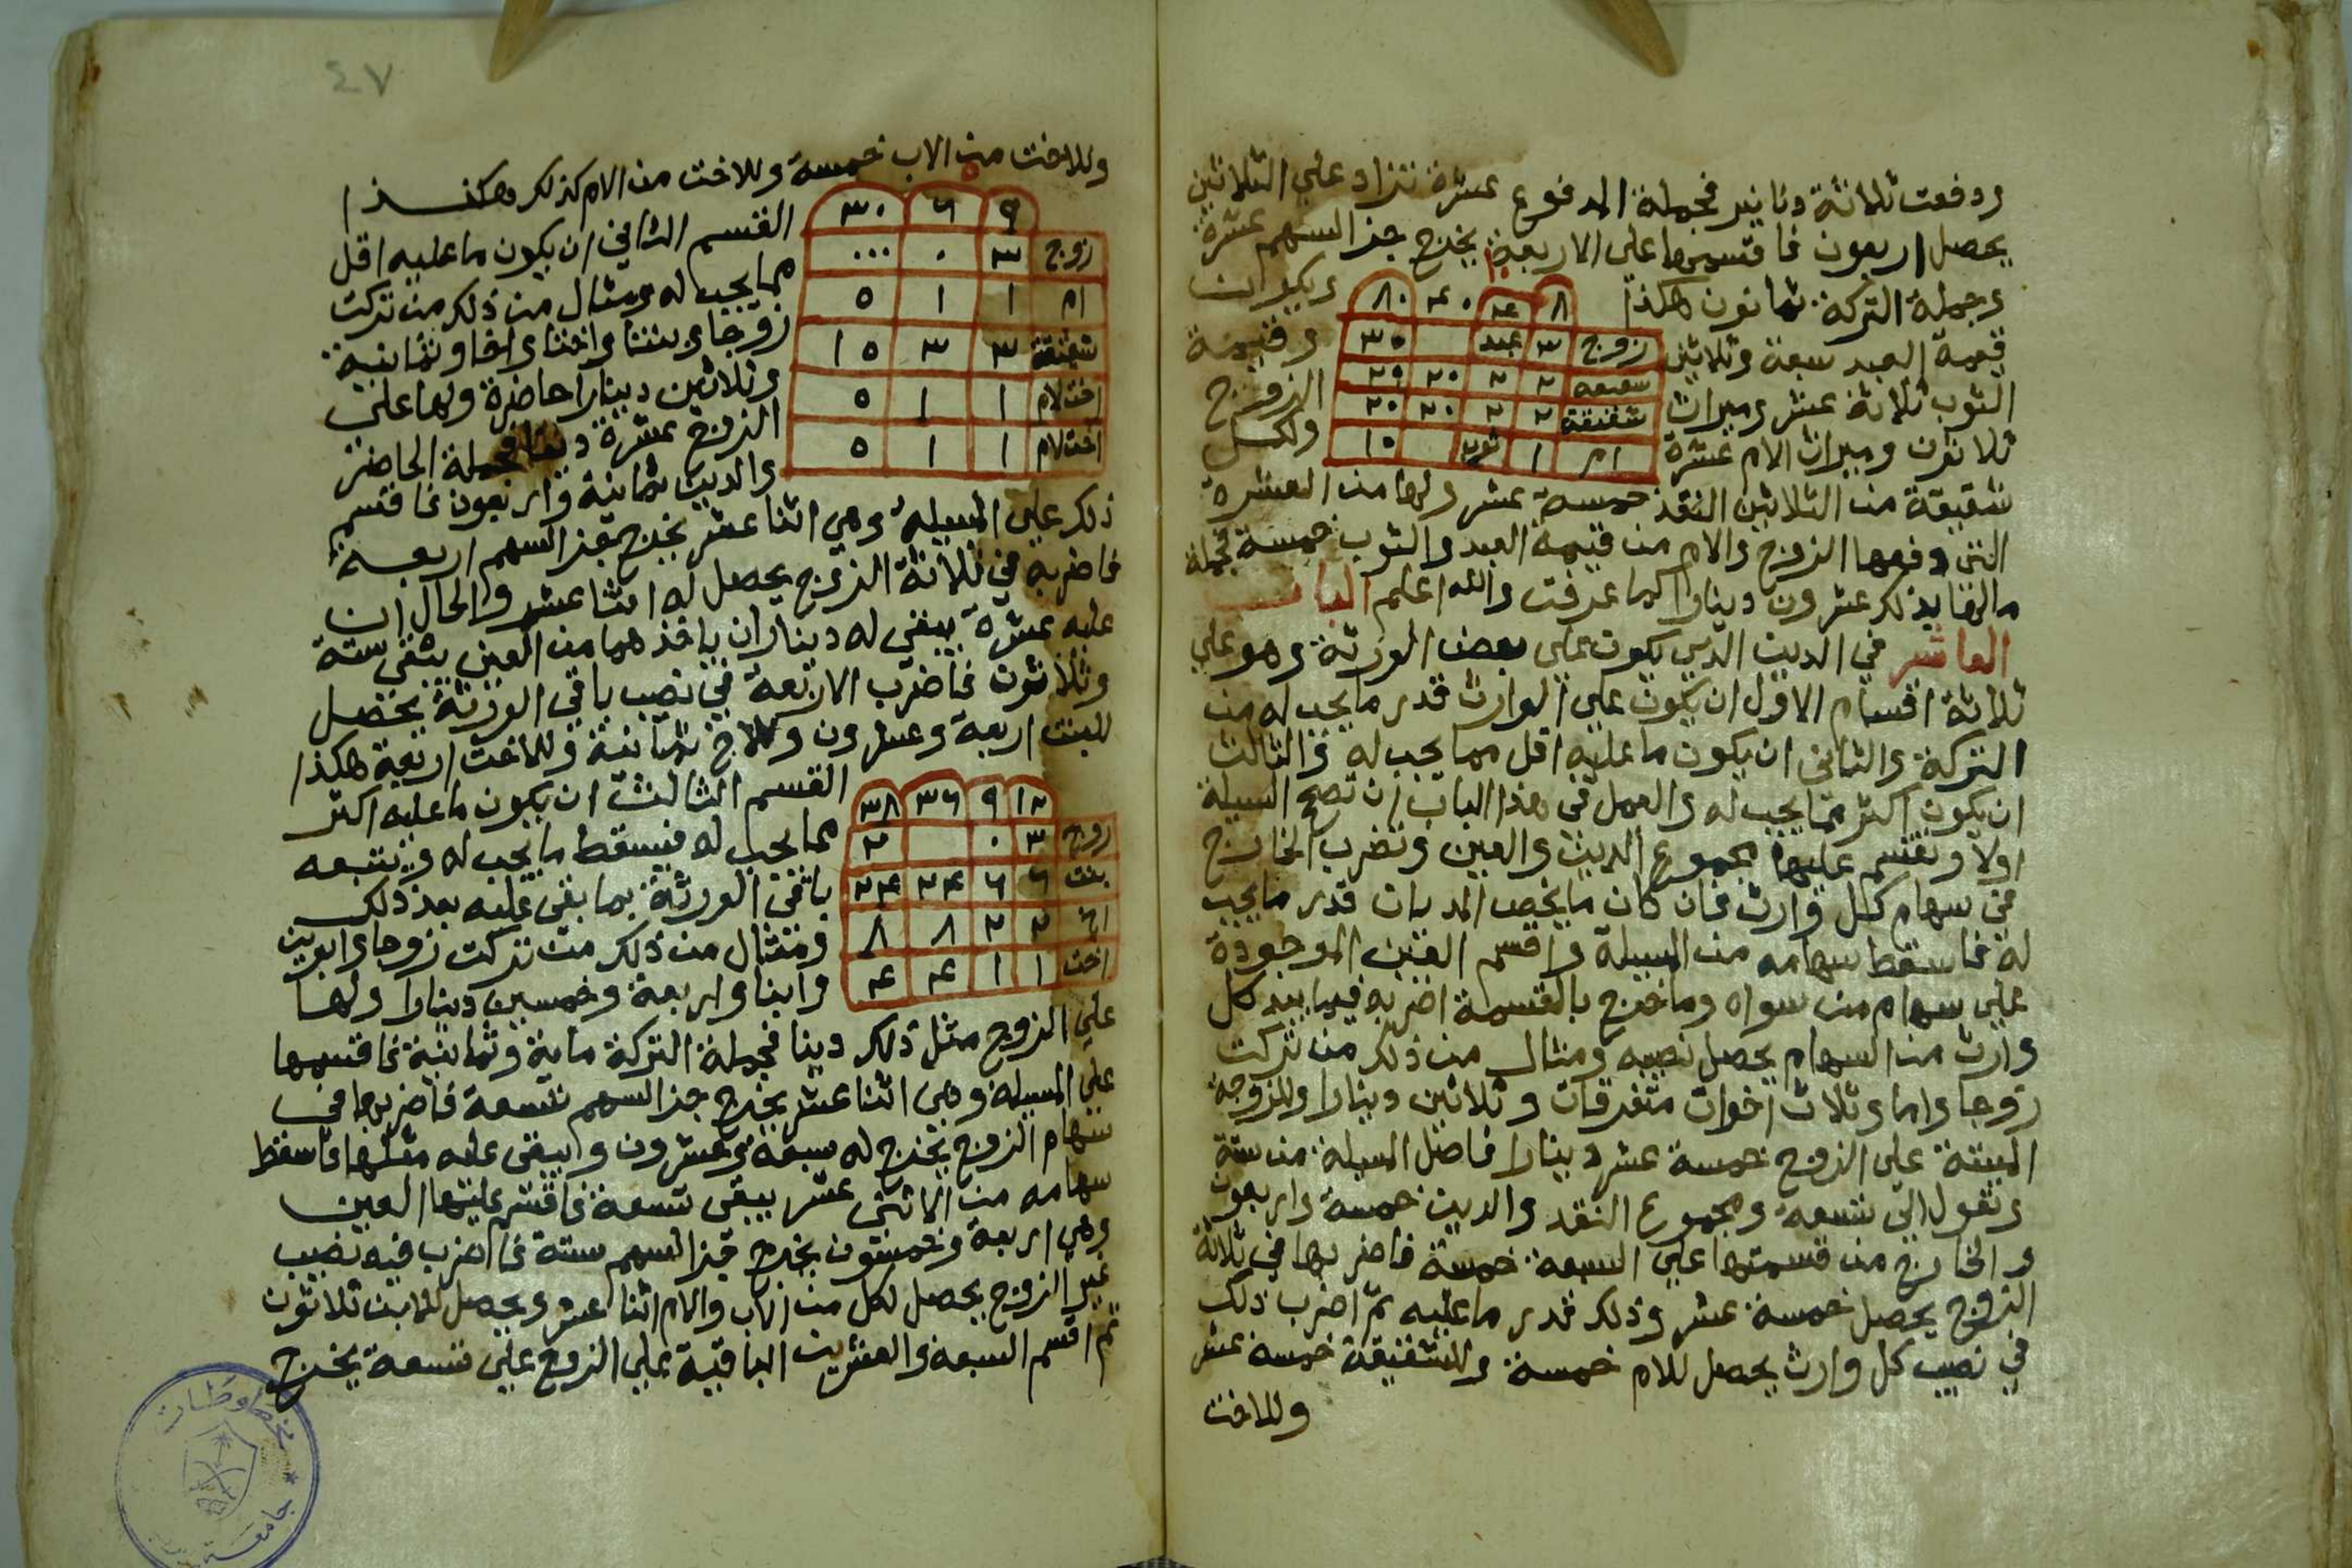 ودفعت ثلاثة دنانير فجملة المدفوع عشرة تزاد علي الثلاثين
يحصل اربعون فاقسمها علي الاربعة يخرج جز السهم عشرة
وجملة التركة ثمانون هكذا ويكون
١٠
٨ ٤ ٤٠ ٨٠
زوج ٣ عبد ٣٠
شقيقه ٢ ٢ ٢٠ ٢٠
شقيقة ٢ ٢ ٢٠ ٢٠
ام ١ ثوب ١٠
قيمة العبد سبعة وثلاثين وقيمة
الثوب ثلاثة عشر وميراث الزوج
ثلاثون وميراث الام عشرة ولكل
شقيقة من الثلاثين النقد خمسة عشر ولها من العشرة
التي دفعها الزوج والام من قيمة العبد والثوب خمسة فجملة
مالها بذلك عشرون دينارا كما عرفت والله اعلم الباب
العاشر في الدين الذي يكون علي بعض الورثة وهو علي
ثلاثة اقسام الاول ان يكون علي الوارث قدر ما يجب له من
التركة والثاني ان يكون ما عليه اقل مما يجب له والثالث
ان يكون اكثر مما يجب له والعمل في هذا الباب ان تصح المسيلة
اولا وتقسم عليها مجموع الدين والعين وتضرب الخارج
في سهام كل وارث فان كان ما يخص المديان قدر ما يجب
له فاسقط سهامه من المسيلة واقسم العين الموجودة
علي سهام من سواه وما خرج بالقسمة اضربه فيما بيد كل
وارث من السهام يحصل نصيبه ومثال من ذلك من تركت
زوجا واما وثلاث اخوات متفرقات وثلاثين دينارا وللزوجة
الميتة علي الزوج خمسة عشر دينارا فاصل المسيلة من ستة
وتعول الي تسعة ومجموع النقد والدين خمسة واربعون
والخارج من قسمتها علي التسعة خمسة فاضربها في ثلاثة
الزوج يحصل خمسة عشر وذلك قدر ما عليه ثم اضرب ذلك
في نصيب كل وارث يحصل للام خمسة وللشقيقة خمسة عشر
وللاخت
٤٧
وللاخت من الاب خمسة وللاخت من الام كذلك وهكذا
٥
٩ ٦ ٣٠
زوج ٣ ٠ ٠٠٠
ام ١ ١ ٥
شقيقة ٣ ٣ ١٥
اخت لام ١ ١ ٥
اخت لام ١ ١ ٥
القسم الثاني ان يكون ما عليه اقل
مما يجب له ومثال من ذلك من تركت
زوجا وبنتا واختا واخا وثمانية
وثلاثين دينارا حاضرة ولها علي
الزوج عشرة دينا فجملة الحاضر
والدين ثمانية واربعون فاقسم
ذلك علي المسيلة وهي اثنا عشر يخرج جز السهم اربعة
فاضربه في ثلاثة الزوج يحصل له اثنا عشر والحال ان
عليه عشرة يبقي له ديناران ياخذهما من العين يبقي ستة
وثلاثون فاضرب الاربعة في نصيب باقي الورثة يحصل
للبنت اربعة وعشرون وللاخ ثمانية وللاخت اربعة هكذا
١٢ ٩ ٣٦ ٣٨
زوج ٣ ٠ ٢
بنت ٦ ٦ ٢٤ ٢٤
اخ ٢ ٢ ٨ ٨
اخت ١ ١ ٤ ٤
القسم الثالث ان يكون ما عليه اكثر
مما يجب له فيسقط ما يجب له ويتبعه
باقي الورثة بما بقي عليه بعد ذلك
ومثال من ذلك من تركت زوجا وابوين
وابنا واربعة وخمسين دينارا ولها
علي الزوج مثل ذلك دينا فجملة التركة ماية وثمانية فاقسمها
علي المسيلة وهي اثنا عشر يخرج جز السهم تسعة فاضربها في
سهام الزوج يخرج له سبعة وعشرون ويبقي عليه مثلها فاسقط
سهامه من الاثني عشر يبقي تسعة فاقسم عليها العين
وهي اربعة وخمسون يخرج جز السهم ستة فاضرب فيه نصيب
غير الزوج يحصل لكل من الاب والام اثنا عشر ويحصل للابن ثلاثون
ثم اقسم السبعة والعشرين الباقية علي الزوج علي تسعة يخرج
مخطوطات
جامعة